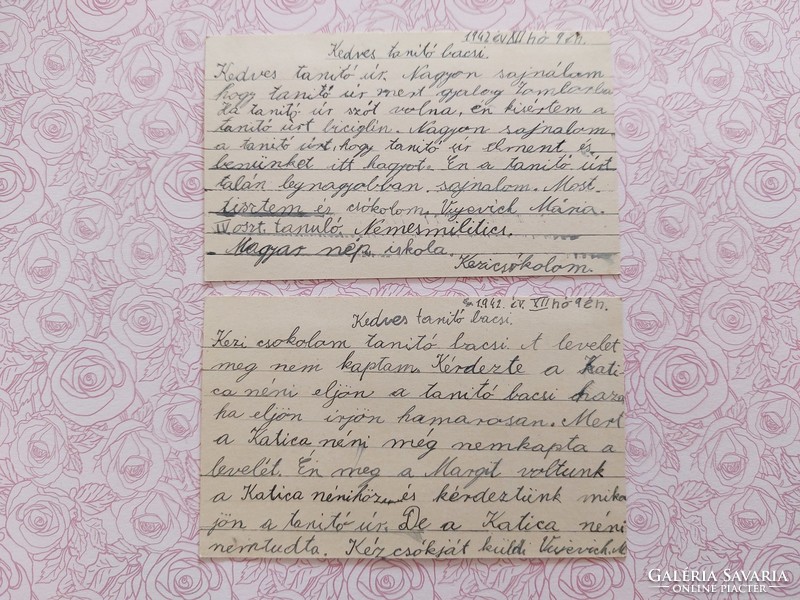 1942 év XII hó 9 én.
Kedves tanitó bacsi.
Kedves tanitó úr. Nagyon sajnálom
hogy tanitó úr mert gyalog
Ha tanitó úr szót volna, én kisértem a
tanitó úrt biciglin. Nagyon sajnalom
a tanitó úrt, hogy tanitó úr elment és
benünket itt hagyot. Én a tanitó úrt
talán legnagyobban sajnalom. Most
tisztem és csókolom. Vujevich Mária.
IV oszt. tanuló. Nemesmilitics.
Magyar nép iskola.
Kezicsókolom.
1942. év. XII hó 9 én.
Kedves tanitó bacsi.
Kezi csokolom tanitó bacsi A levelet
meg nem kaptam. Kérdezte a Kati
ca néni eljön a tanitó bacsi haza
ha eljön irjön hamarosan. Mert
a Katica néni még nemkapta a
levelét. Én meg a Margit voltunk
a Katica nénihöz és kérdeztünk mika
jön a tanitó úr. De a Katica néni
nemtudta. Kéz csókját küldi Vujevich. M
GALÉRIA SAVARIA
ONLINE PIACTÉR